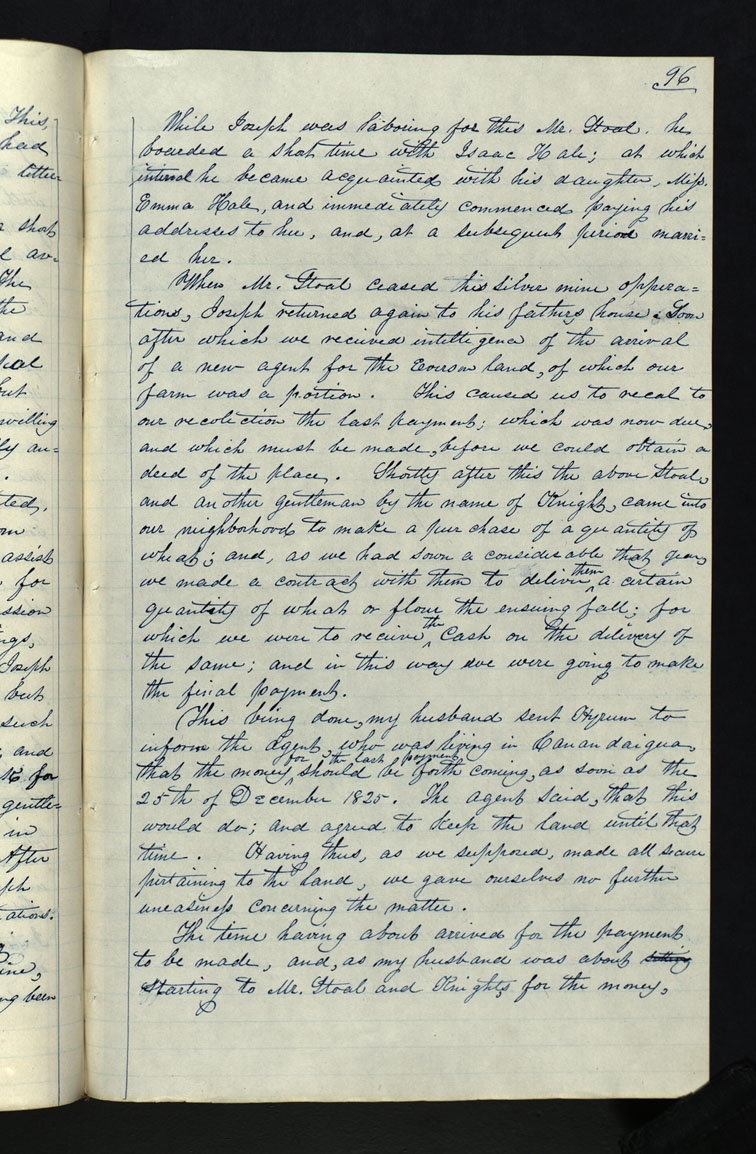 96
While Joseph was laboring for this Mr. Stoal, he
boarded a short time with Isaac Hale; at which
interval he became acquainted with his daughter, Miss,
Emma Hale, and immediately commenced paying his
addresses to her, and, at a subsequent period marri=
ed her.
When Mr. Stoal ceased his silver mine oppera=
tions, Joseph returned again to his father's house. Soon
after which we received intelligence of the arrival
of a new agent for the Everson land, of which our
farm was a portion. This caused us to recal to
our recolection the last payment; which was now due,
and which must be made, before we could obtain a
deed of the place. Shortly after this the above Stoal,
and another gentleman by the name of Knight, came into
our neighborhood to make a purchase of a quantity of
wheat; and, as we had sown a considerable that year,
we made a contract with them to deliver them a certain
quantity of wheat or flour the ensuing fall; for
which we were to receive the Cash on the delivery of
the same; and in this way we were going to make
the final payment.
This being done, my husband sent Hyrum to
inform the Agent, who was living in Canandaigua,
that the money for the last payment should be forth coming, as soon as the
25th of December 1825. The agent said, that this
would do; and agreed to keep the land until that
time. Having thus, as we supposed, made all secure
pertaining to the land, we gave ourselves no further
uneasiness concerning the matter.
The time having about arrived for the payment
to be made, and, as my husband was about
starting to Mr. Stoal and Knights for the money,
This,
had
letter
a short
av=
The
the
and
but
willing
ly an=
ted,
assist
for
ssion
ngs,
Joseph
but
such
and
for
gentle=
in
After
ph
ations.
ine,
ng been